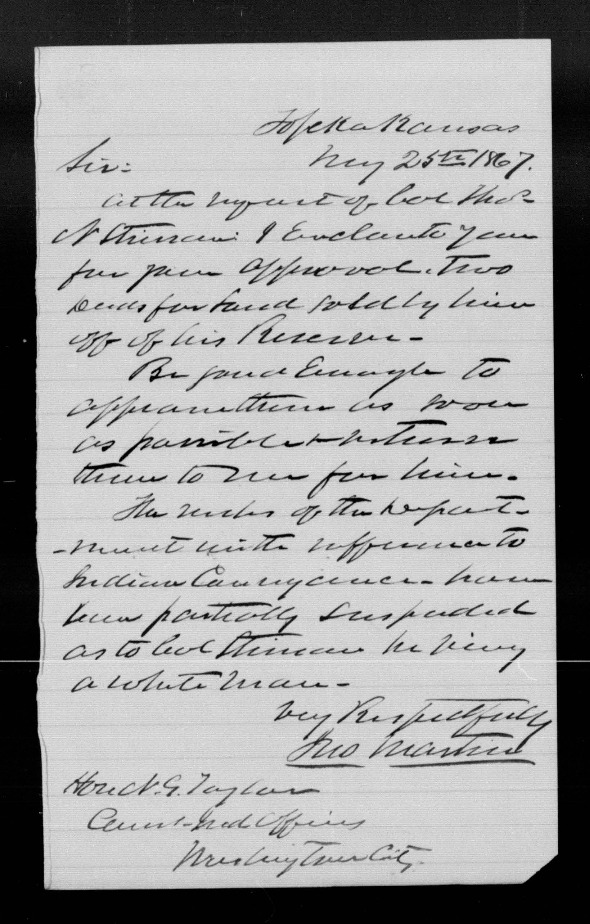 Topeka Kansas
May 25th 1867.
Sir:
At the request of Col Thos
N Stinson I Enclose to you
for your approval, two
Deeds for Land sold by him
off of his Reserve -
Be good Enough to
approve them as soon
as possible & return
them to me for him.
The rules of the Depart-
-ment with refference to
Indian Conveyances - have
been partially suspended
as to Col Stinson he being
a white man -
Very Respectfully
Jno Martin
Hon N. G. Taylor
Comr Ind Affairs
Washington City